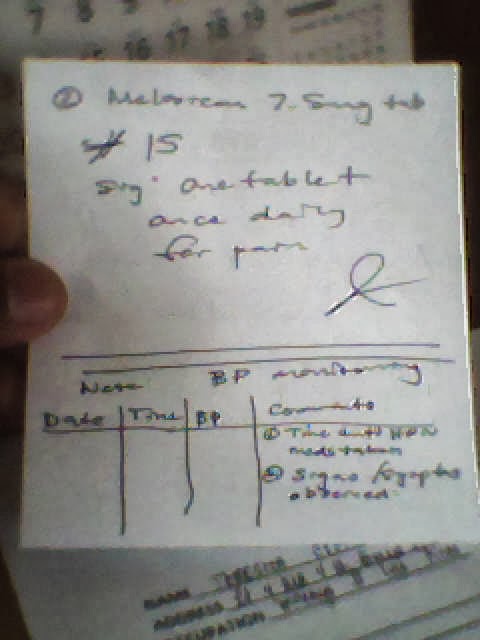 7 8 9
15 16 17 18 19
② Meloxicam 7.5mg tab
# 15
Sig: one tablet
once daily
for pain
Note: BP monitoring
Date Time BP Comments
① Time anti HPN
meds taken
② Signs/symptoms
observed
NAME
ADDRESS
OCCUPATION